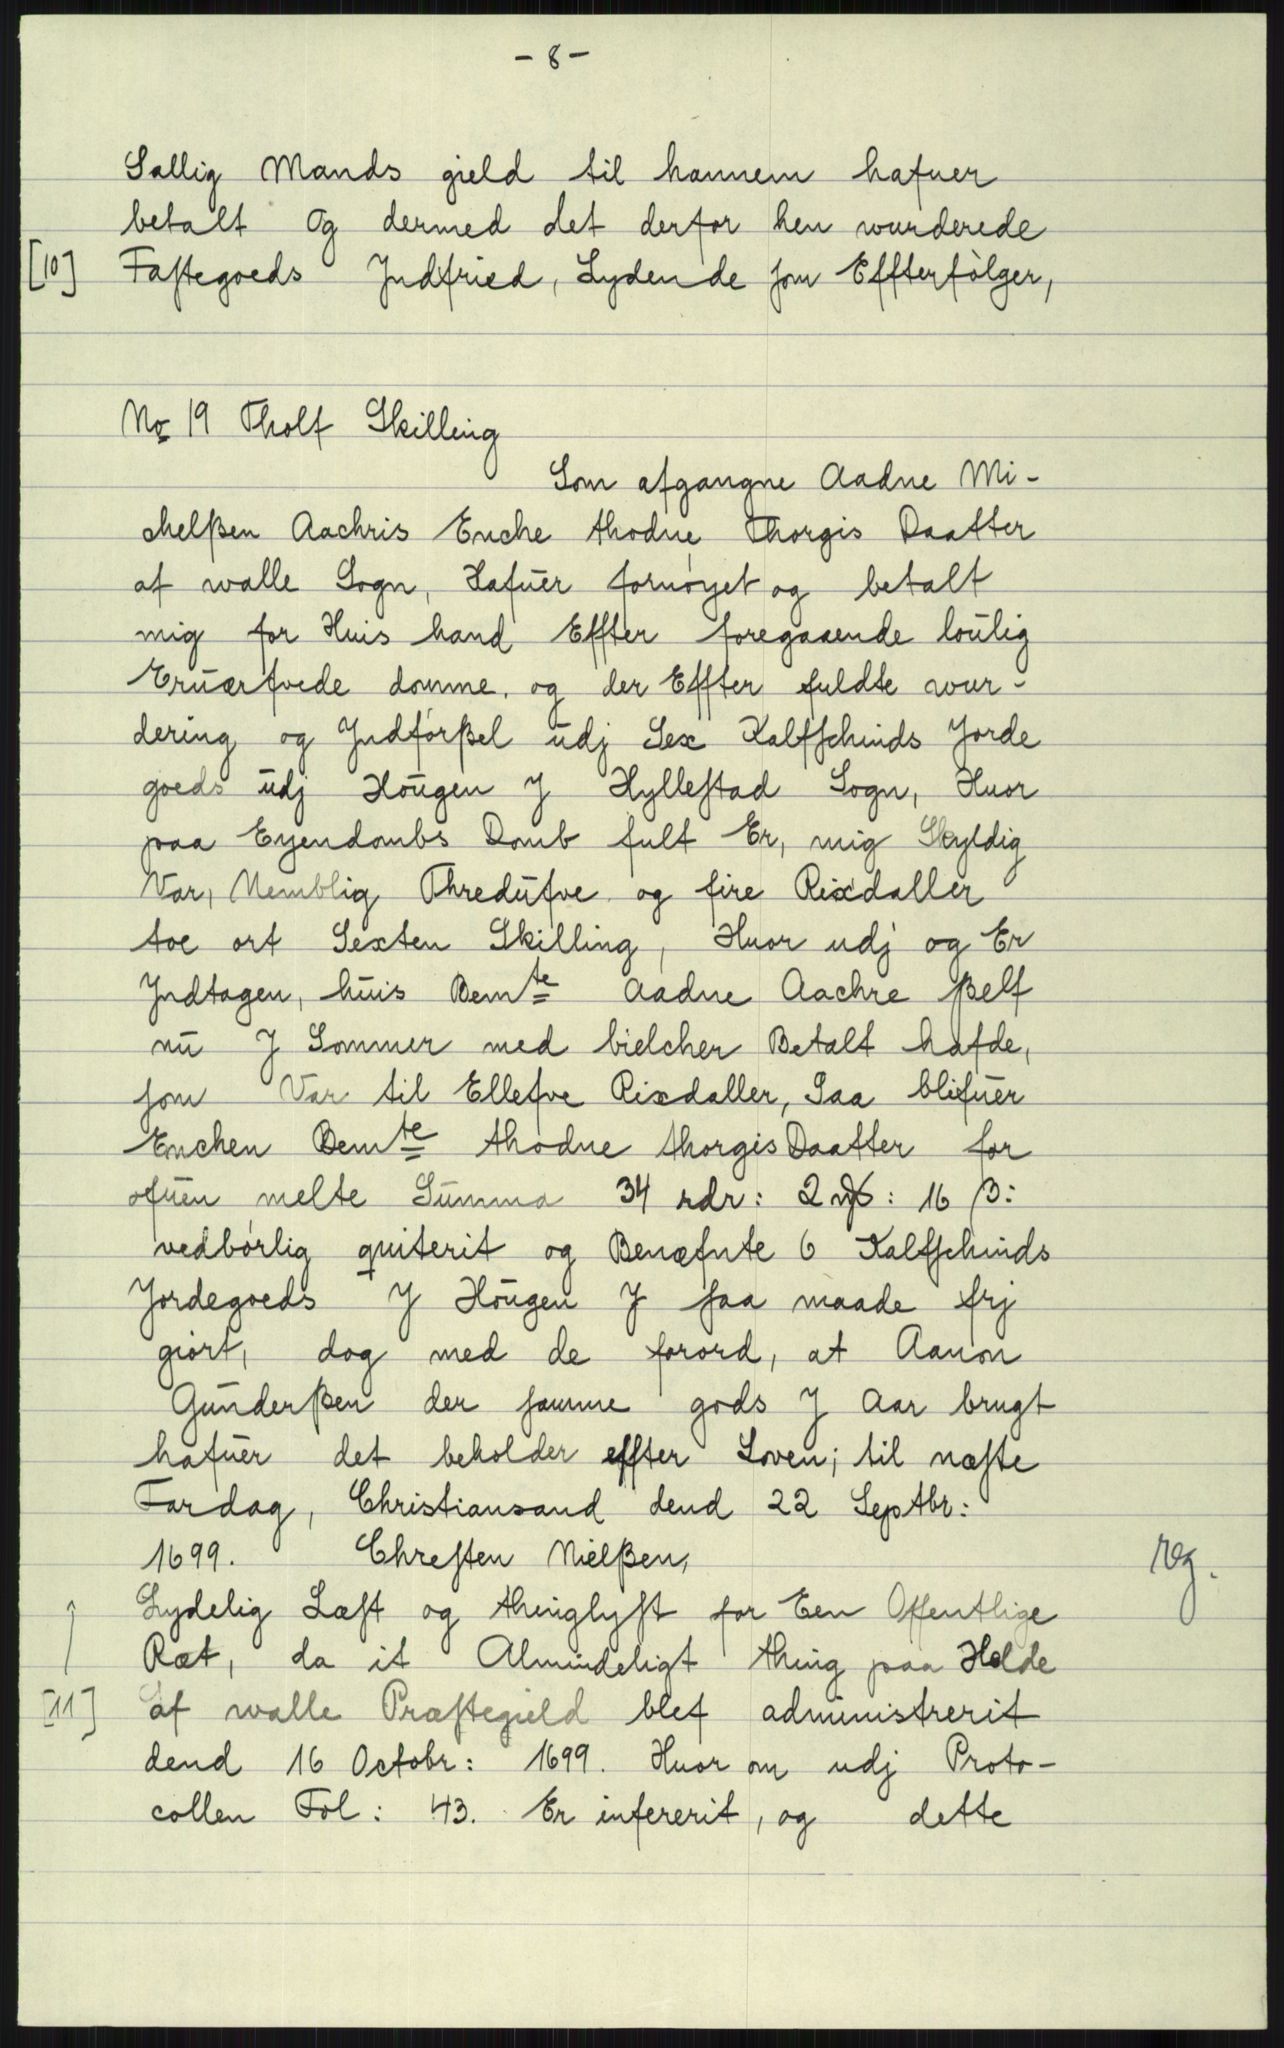 - 8 -
Sallig Mands gield til hannem hafuer
betalt Og dermed det derfor hen wurderede
[10] Faſtegoeds Jndfried, Lydende ſom Effterfölger,
No 19 Tholf Skilling
Som afgangne Aadne Mi-
chelßen Aachris Enche thodne Thorgis Daatter
af walle Sogn, Hafuer fornöyet og betalt
mig for Huis hand Effter foregaaende loulig
Eruærfvede domme. og der Effter fuldte wur-
dering og Jndförßel udj Sex Kalfſchinds Jorde
goeds udj Hougen J Hylleſtad Sogn, Huor
paa Eyendombs Domb fult Er, mig Skyldig
Var, Nemblig Thredufve og fire Rixdaller
toe ort Sexten Skilling, Huor udj og Er
Jndtagen, huis Bemte Aadne Aachre ßelf
nu J Sommer med bielcher Betalt hafde,
ſom Var til Ellefve Rixdaller, Saa blifuer
Enchen Bemte thodne thorgis Daatter for
ofuen melte Summa 34 rdr: 2 : 16 β:
vedbörlig quiterit og Benæfnte 6 Kalfſchinds
Jordegoeds J Hougen J ſaa maade frj
giort, dog med de forord, at Aanon
Gunderßen der ſamme gods J Aar brugt
hafuer det beholder effter Loven; til næſte
Fardag, Christiansand dend 22 Septbr:
1699. Chreſten Nielßen, reg.
Lydelig Læſt og thinglyſt for Een Offentlige
Ræt, da it Almindeligt thing paa Helde
[11] af walle Præſtegield blef administrerit
dend 16 Octobr: 1699. Huor om udj Proto-
collen Fol: 43. Er inſererit, og dette